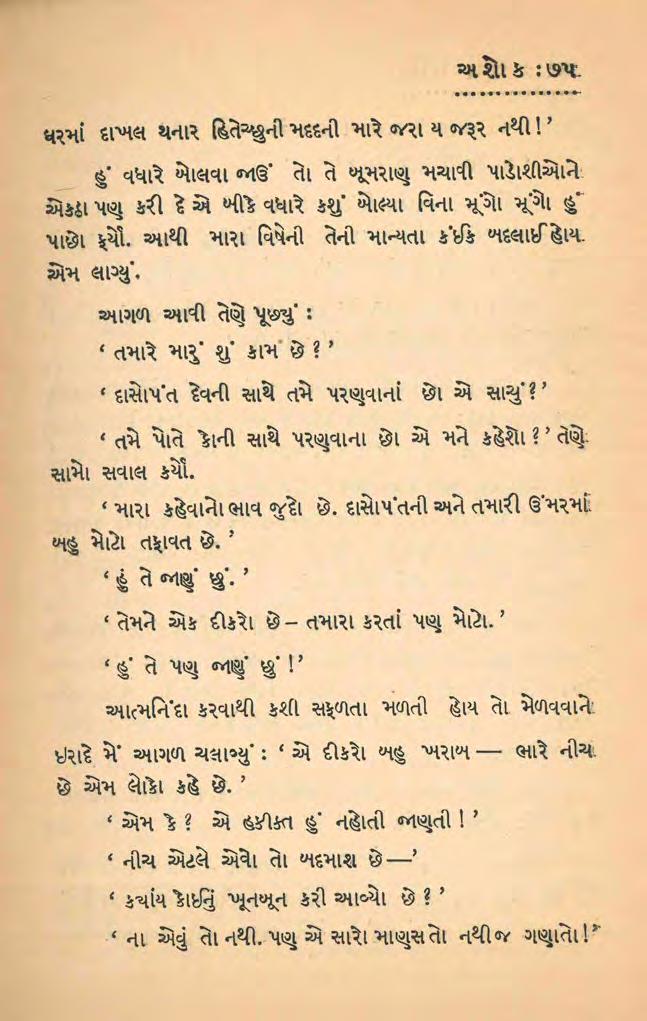 અશોક : ૭૫
ઘરમાં દાખલ થનાર હિતેચ્છુની મદદની મારે જરા ય જરૂર નથી!’
હું વધારે બોલવા જાઉં તો તે બૂમરાણ મચાવી પાડોશીઓને
એકઠા પણ કરી દે એ બીકે વધારે કશું બોલ્યા વિના મૂંગો મૂંગો હું
પાછો ફર્યો. આથી મારા વિષેની તેની માન્યતા કંઈક બદલાઈ હોય
એમ લાગ્યું.
આગળ આવી તેણે પૂછ્યું :
‘ તમારે મારું શું કામ છે ? ’
‘ દાસોપંત દેવની સાથે તમે પરણવાનાં છો એ સાચું ?’
‘ તમે પોતે કોની સાથે પરણવાના છો એ મને કહેશો ? ’ તેણે
સામો સવાલ કર્યો.
‘ મારા કહેવાનો ભાવ જુદો છે. દાસોપંતની અને તમારી ઉંમરમાં
બહુ મોટો તફાવત છે. ’
‘ હું તે જાણું છું. ’
‘ તેમને એક દીકરો છે – તમારા કરતાં પણ મોટો. ’
‘ હું તે પણ જાણું છું !’
આત્મનિંદા કરવાથી કશી સફળતા મળતી હોય તો મેળવવાને
ઇરાદે મેં આગળ ચલાવ્યું : ‘ એ દીકરો બહુ ખરાબ — ભારે નીચ
છે એમ લોકો કહે છે. ’
‘ એમ કે ? એ હકીક્ત હું નહોતી જાણતી ! ’
‘ નીચ એટલે એવો તો બદમાશ છે—’
‘ કચાંય કોઈનું ખૂનબૂન કરી આવ્યો છે ? ’
‘ ના એવું તો નથી. પણ એ સારો માણસ તો નથી જ ગણાતો !’